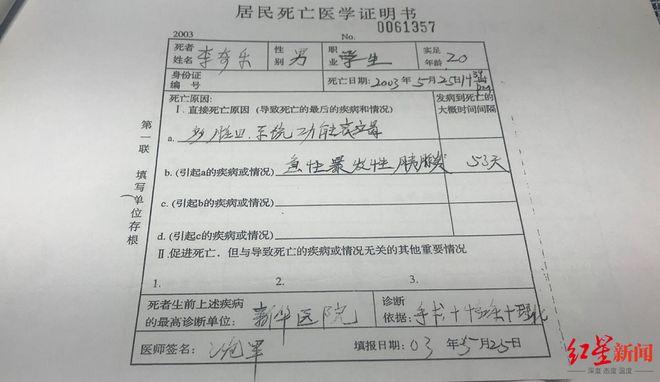 居民死亡医学证明书
2003 No. 0061357
死者姓名 李奇乐 性别 男 职业 学生 实足年龄 20
身份证编号 死亡日期:2003年5月25日14
死亡原因: 发病到死亡的大概时间间隔
Ⅰ.直接死亡原因(导致死亡的最后的疾病和情况)
a. 系统功能衰竭
b.(引起a的疾病或情况) 急性暴发性胰腺炎 53天
c.(引起b的疾病或情况)
d.(引起c的疾病或情况)
Ⅱ.促进死亡,但与导致死亡的疾病或情况无关的其他重要情况
1. 2. 3.
死者生前上述疾病的最高诊断单位: 新华医院 诊断依据: 手术+ +
医师签名: 填报日期: 03年5月25日
第一联 填写单位存根
红星新闻
深度 态度 温度